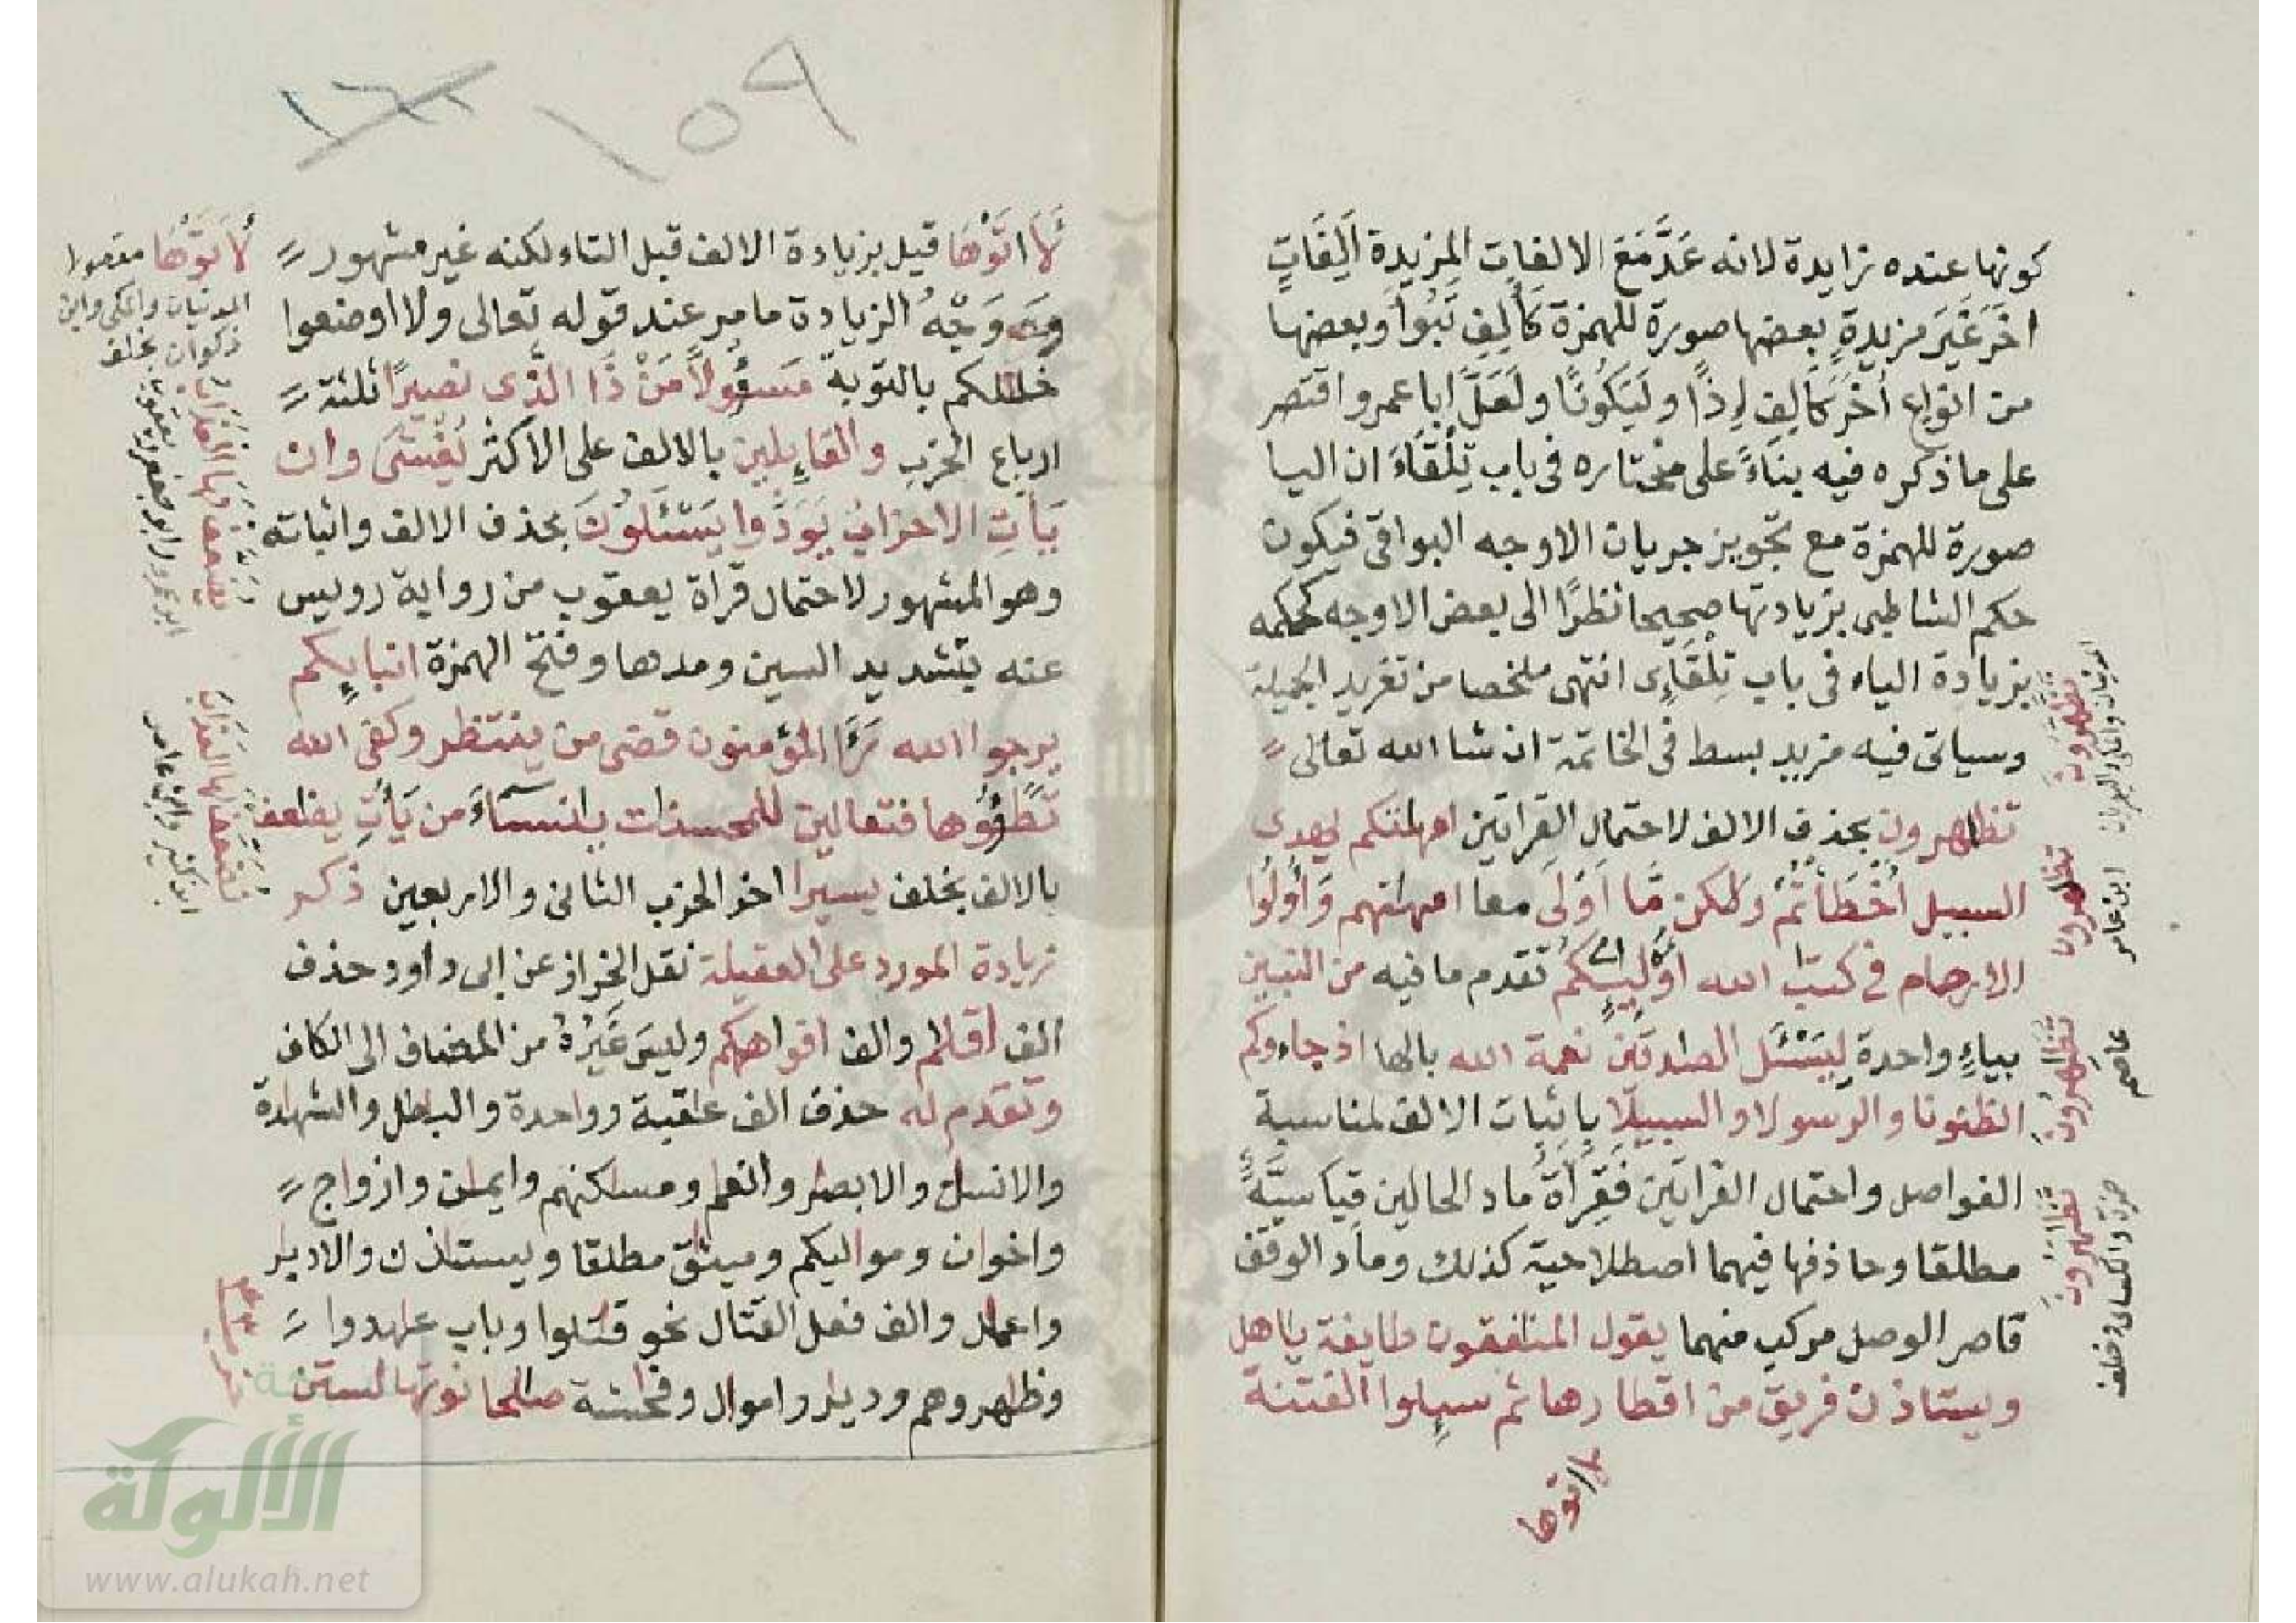 كونها عنده زايدة لانه عَدَّ مَعَ الالفات المزيدة اَلِفَاتٍ
اخَرَ غَيَر مزيدةٍ بعضها صورة للهمزة كَألِفِ تَبُوأ وبعضها
من انواع أُخَرَ كالِفِ إِذًا وليَكُونًا ولَعَلَّ ابا عمرو اقتصر
على ما ذكره فيه بناءً على مختاره فى باب تِلْقَاءَ ان اليا
صورة للهمزة مع تجويز جريان الاوجه البواقى فيكون
حكم الشاطبى بزيادتها صحيحا نظرًا الى بعض الاوجه كحكمه
بزيادة الياء فى باب تِلْقَاءِى انتهى ملخصا من تغريد الجميلة
وسياتى فيه مزيد بسط فى الخاتمة ان شا الله تعالى
تظهرون بحذف الالف لاحتمال القراتين امهتكم يهدى
السبيل أَخْطَأْتُمْ ولكن مَّا أَوْلَى معا امهتهم وَأُولُوا
الارحام فى كتب الله اوليٕكم تقدم ما فيه من النبين
بياءٍ واحدة لِيَسْئَل الصدقين نعمة الله بالها اذ جاءوكم
الظنونا والرسولا والسبيلا باثبات الالف لمناسبة
الفواصل واحتمال القراتين فَقِرَاَةُ ماد الحالين قِيَاسِيَّةٌ
مطلقا وحاذفها فيهما اصطلاحية كذلك وماد الوقف
قاصر الوصل مركب منهما يقول المنفقون طايفة ياهل
ويستاذن فريق من اقطارها ثم سيٕلوا الفتنة
لااتوها
تظهرون
المدنيان والمكى والبصريان
تظهرون
ابن عامر
تظهرون
عاصم
تظهرون
حمزة والكسائى وخلف
١٥٩
١٦٠
لَأاتَوْهَا قيل بزيادة الالف قبل التاء لكنه غير مشهور
وَوَجْهُ الزيادة ما مر عند قوله تعالى ولااوضعوا
خللكم بالتوبة مَسْئولاً مَنْ ذَا الَّذى نصيرًا ثلثة
ارباع الحزب والقايٕلين بالالف على الاكثر يُغْشَى وان
يَأتِ الاحزاب يَوَدُّوا يَسْئَلُونَ بحذف الالف واثباته
وهو المشهور لاحتمال قراة يعقوب من رواية رويس
عنه بتشديد السين ومدها وفتح الهمزة انبايٕكم
يرجوا الله رَءَا المؤمنون قضى من ينتظر وكفى الله
تَطَئُوها فتعالين للمحسنت ينساءَ من يَأتِ يضعف
بالالف بخلف يسيرا اخر الحزب الثانى والاربعين ذكر
زيادة المورد على العقيلة نقل الخراز عن ابى داود حذف
الف اقلم والف افواهكم وليس غَيْرُهُ من المضاف الى الكاف
وتقدم له حذف الف عقبة وواحدة والبطل والشهدة
والانسن والابصر والنعم ومسكنهم وايمن وازواج
واخوان ومواليكم وميثق مطلقا ويستاذن والادبر
واعمل والف فعل القتال نحو قتلوا وباب عهدوا
وظهروهم وديار واموال وفحشة صلحا نوتها لستن
لأتوها مقصورا
المدنيان والمكى وابن
ذكوان بخلف
ابو عمرو وابو جعفر ويعقوب
ابن كثير وابن عامر
الألوكة
www.alukah.net